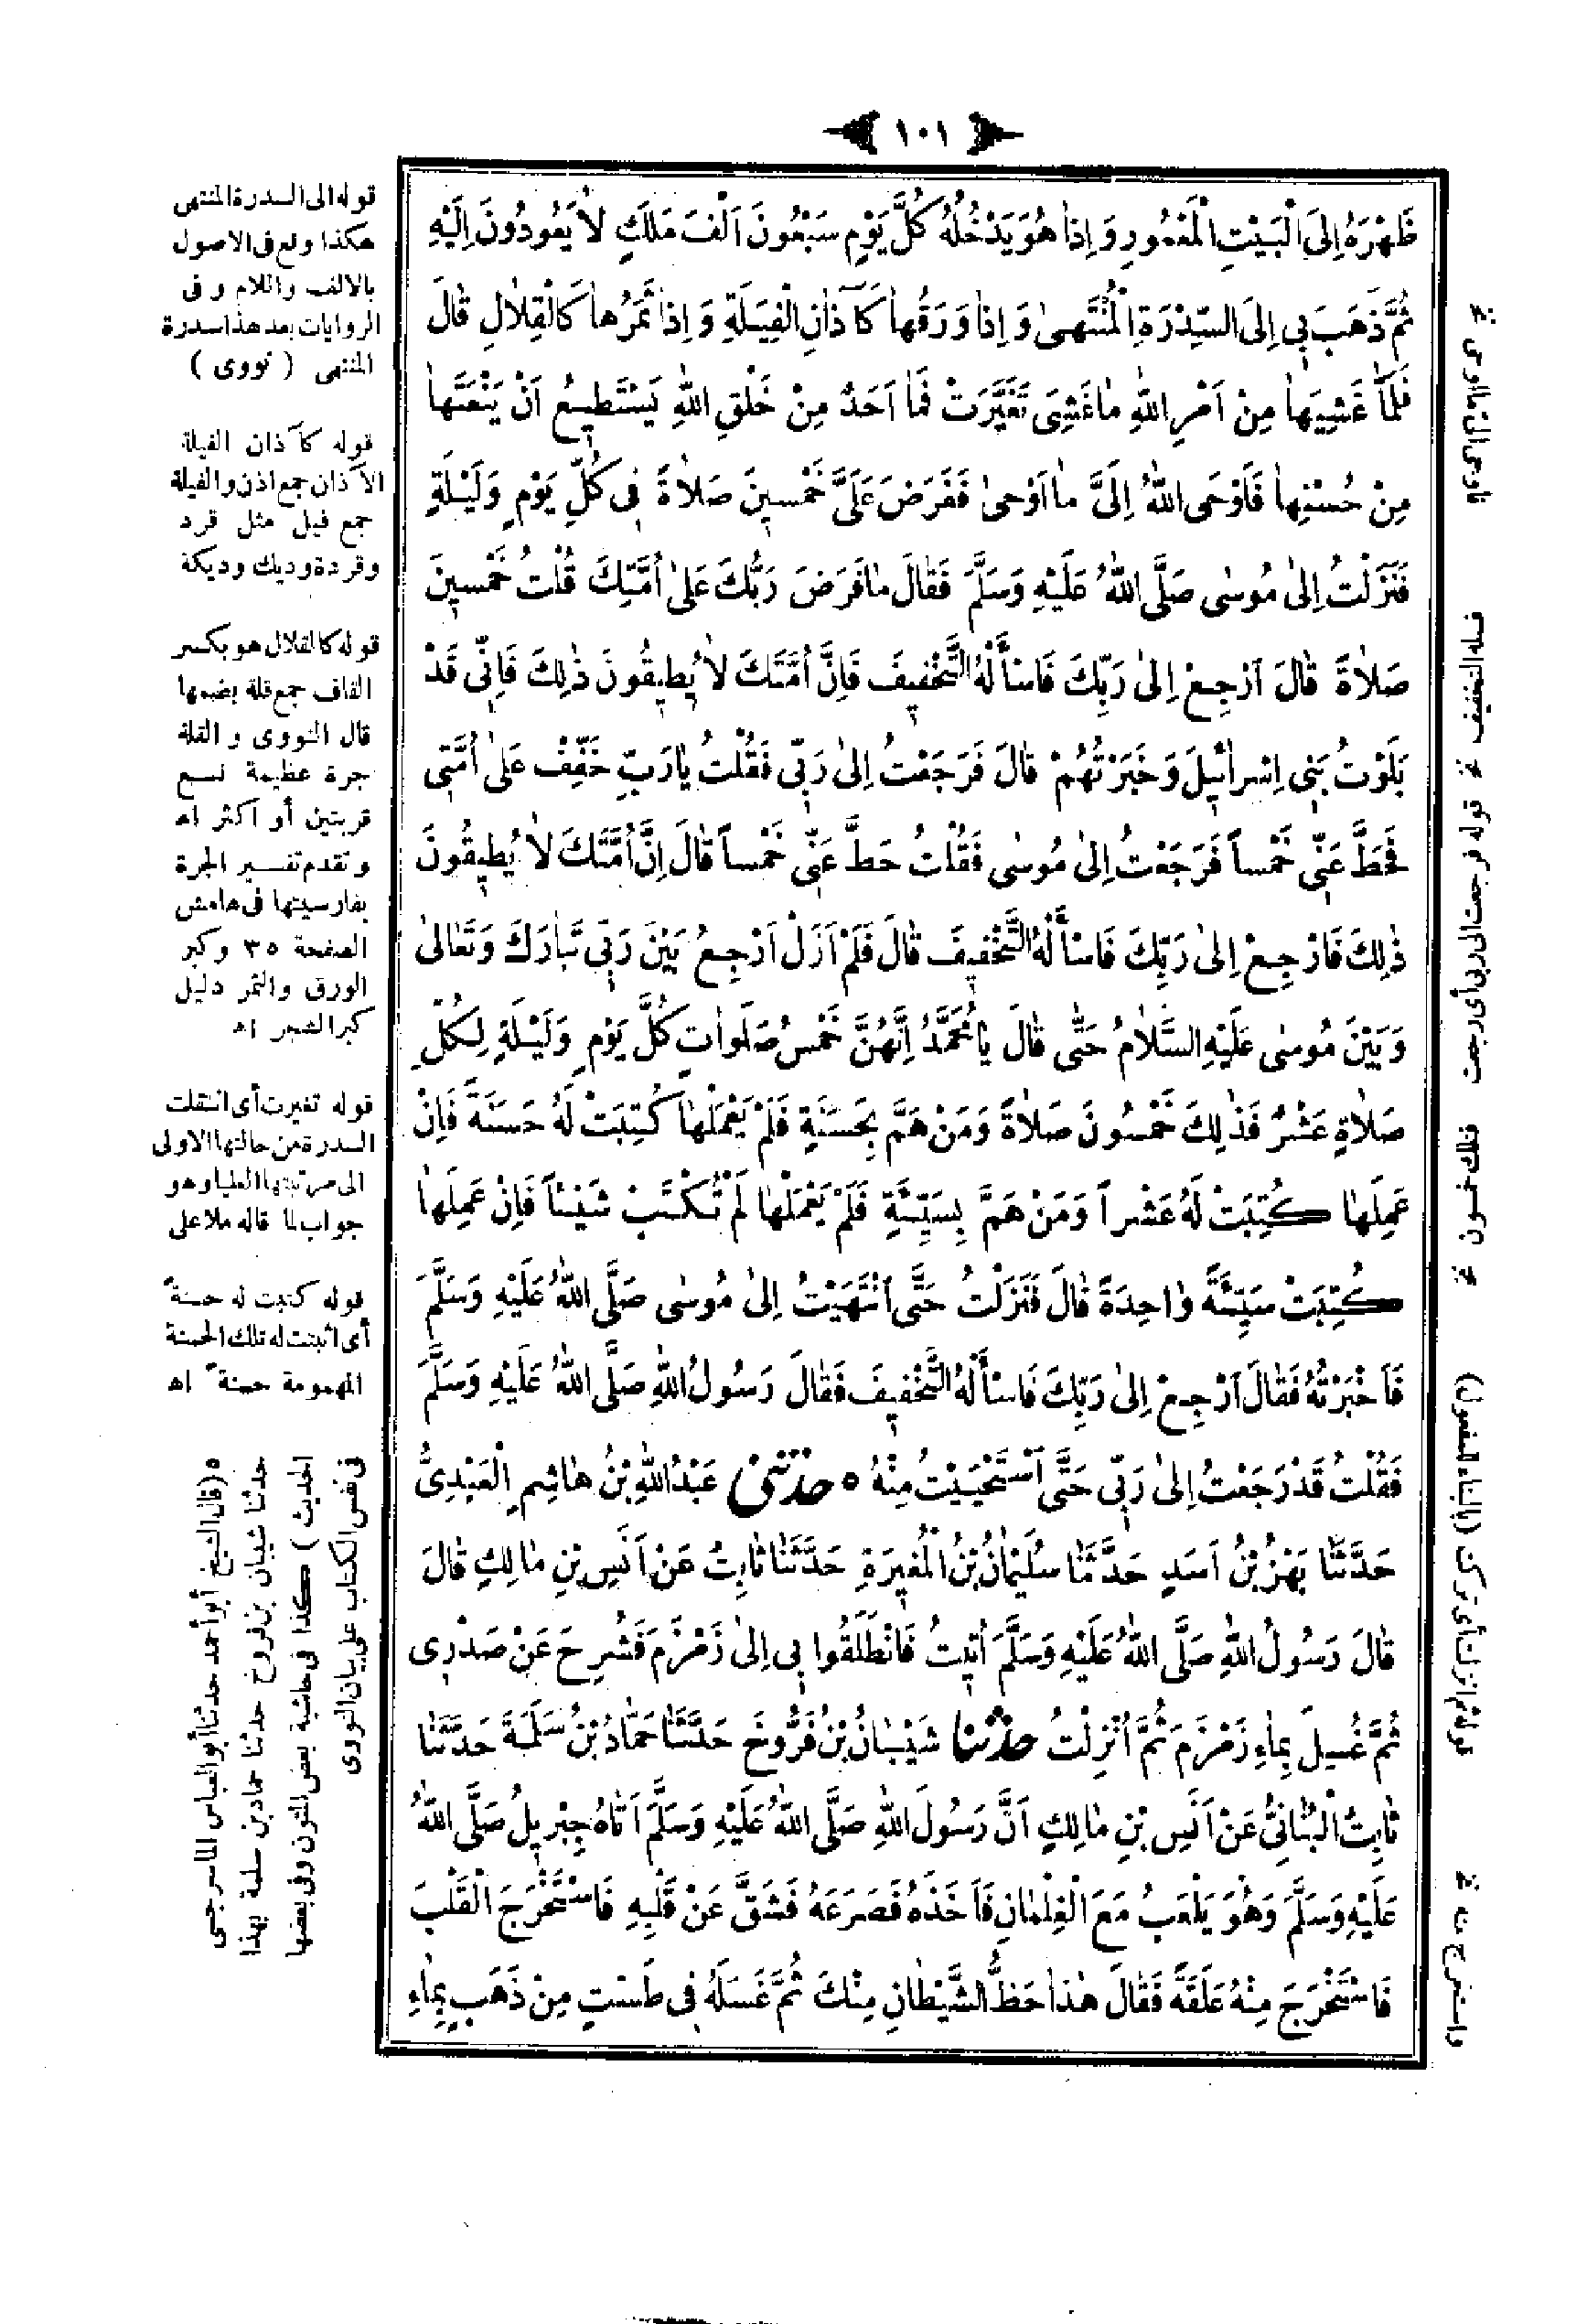 ١٠١
ظَهْرَهُ اِلَى الْبَيْتِ الْمَعْمُورِ وَ اِذَا هُوَ يَدْخُلُهُ كُلَّ يَوْمٍ سَبْعُونَ اَلْفَ مَلَكٍ لَا يَعُودُونَ اِلَيْهِ
ثُمَّ ذَهَبَ بِى اِلَى السِّدْرَةِ الْمُنْتَهىٰ وَ اِذَا وَرَقُهَا كَآذَانِ الْفِيَلَةِ وَ اِذَا ثَمَرُهَا كَالْقِلَالِ قَالَ
فَلَمَّا غَشِيَهَا مِنْ اَمْرِ اللّٰهِ مَا غَشِىَ تَغَيَّرَتْ فَمَا اَحَدٌ مِنْ خَلْقِ اللّٰهِ يَسْتَطيعُ اَنْ يَنْعَتَهَا
مِنْ حُسْنِهَا فَاَوْحَى اللّٰهُ اِلَىَّ مَا اَوْحىٰ فَفَرَضَ عَلَىَّ خَمْسينَ صَلَاةً فِى كُلِّ يَوْمٍ وَلَيْلَةٍ
فَنَزَلْتُ اِلىٰ مُوسٰى صَلَّى اللّٰهُ عَلَيْهِ وَسَلَّمَ فَقَالَ مَا فَرَضَ رَبُّكَ عَلىٰ اُمَّتِكَ قُلْتُ خَمْسينَ
صَلَاةً قَالَ اَرْجِعْ اِلىٰ رَبِّكَ فَاسْأَلْهُ التَّخْفيفَ فَاِنَّ اُمَّتَكَ لَا يُطيقُونَ ذٰلِكَ فَاِنِّى قَدْ
بَلَوْتُ بَنِى اِسْرَائيلَ وَخَبَرْتُهُمْ قَالَ فَرَجَعْتُ اِلىٰ رَبِّى فَقُلْتُ يَا رَبِّ خَفِّفْ عَلىٰ اُمَّتِى
فَحَطَّ عَنِّى خَمْساً فَرَجَعْتُ اِلىٰ مُوسٰى فَقُلْتُ حَطَّ عَنِّى خَمْساً قَالَ اِنَّ اُمَّتَكَ لَا يُطيقُونَ
ذٰلِكَ فَارْجِعْ اِلىٰ رَبِّكَ فَاسْأَلْهُ التَّخْفيفَ قَالَ فَلَمْ اَزَلْ اَرْجِعُ بَيْنَ رَبِّى تَبَارَكَ وَتَعَالىٰ
وَبَيْنَ مُوسٰى عَلَيْهِ السَّلَامُ حَتّٰى قَالَ يَا مُحَمَّدُ اِنَّهُنَّ خَمْسُ صَلَوَاتٍ كُلَّ يَوْمٍ وَلَيْلَةٍ لِكُلِّ
صَلَاةٍ عَشْرٌ فَذٰلِكَ خَمْسُونَ صَلَاةً وَمَنْ هَمَّ بِحَسَنَةٍ فَلَمْ يَعْمَلْهَا كُتِبَتْ لَهُ حَسَنَةً فَاِنْ
عَمِلَهَا كُتِبَتْ لَهُ عَشْراً وَمَنْ هَمَّ بِسَيِّئَةٍ فَلَمْ يَعْمَلْهَا لَمْ تُكْتَبْ شَيْئاً فَاِنْ عَمِلَهَا
كُتِبَتْ سَيِّئَةً وَاحِدَةً قَالَ فَنَزَلْتُ حَتَّى اَنْتَهَيْتُ اِلىٰ مُوسٰى صَلَّى اللّٰهُ عَلَيْهِ وَسَلَّمَ
فَاَخْبَرْتُهُ فَقَالَ اَرْجِعْ اِلىٰ رَبِّكَ فَاسْأَلْهُ التَّخْفيفَ فَقَالَ رَسُولُ اللّٰهِ صَلَّى اللّٰهُ عَلَيْهِ وَسَلَّمَ
فَقُلْتُ قَدْ رَجَعْتُ اِلىٰ رَبِّى حَتَّى اَسْتَحْيَيْتُ مِنْهُ ه حَدَّثَنِى عَبْدُ اللّٰهِ بْنُ هَاشِمٍ الْعَبْدِىُّ
حَدَّثَنَا بَهْزُ بْنُ اَسَدٍ حَدَّثَنَا سُلَيْمَانُ بْنُ الْمُغيرَةِ حَدَّثَنَا ثَابِتٌ عَنْ اَنَسِ بْنِ مَالِكٍ قَالَ
قَالَ رَسُولُ اللّٰهِ صَلَّى اللّٰهُ عَلَيْهِ وَسَلَّمَ اُتيتُ فَانْطَلَقُوا بِى اِلىٰ زَمْزَمَ فَشُرِحَ عَنْ صَدْرِى
ثُمَّ غُسِلَ بِمَاءِ زَمْزَمَ ثُمَّ اُنْزِلْتُ حدثنا شَيْبَانُ بْنُ فَرُّوخَ حَدَّثَنَا حَمَّادُ بْنُ سَلَمَةَ حَدَّثَنَا
ثَابِتٌ الْبُنَانِىُّ عَنْ اَنَسِ بْنِ مَالِكٍ اَنَّ رَسُولَ اللّٰهِ صَلَّى اللّٰهُ عَلَيْهِ وَسَلَّمَ اَتَاهُ جِبْريلُ صَلَّى اللّٰهُ
عَلَيْهِ وَسَلَّمَ وَهُوَ يَلْعَبُ مَعَ الْغِلْمَانِ فَاَخَذَهُ فَصَرَعَهُ فَشَقَّ عَنْ قَلْبِهِ فَاسْتَخْرَجَ الْقَلْبَ
فَاسْتَخْرَجَ مِنْهُ عَلَقَةً فَقَالَ هٰذَا حَظُّ الشَّيْطَانِ مِنْكَ ثُمَّ غَسَلَهُ فِى طَسْتٍ مِنْ ذَهَبٍ بِمَاءِ
قوله الى السدرة المنتهى
هكذا وقع فى الاصول
بالالف واللام وفى
الروايات بعد هذا سدرة
المنتهى ( نووى )
قوله كآذان الفيلة
الآذان جمع اذن والفيلة
جمع فيل مثل قرد
وقردة وديك وديكة
قوله كالقلال هو بكسر
القاف جمع قلة بضمها
قال النووى و القلة
جرة عظيمة تسع
قربتين أو أكثر اه
وتقدم تفسير الجرة
بفارسيتها فى هامش
الصفحة ٣٥ وكبر
الورق والثمر دليل
كبر الشجر اه
قوله تغيرت أى انتقلت
السدرة من حالتها الاولى
الى مرتبتها العليا وهو
جواب لما قاله ملا على
قوله كتبت له حسنةً
أى اثبتت له تلك الحسنة
المهمومة حسنةً اه
ه (قال الشيخ أبو أحمد حدثنا أبو العباس الماسرجسى
حدثنا شيبان بن فروخ حدثنا حماد بن سلمة بهذا
الحديث ) كذا فى حاشية بعض المتون وفى بعضها
فى نفس الكتاب على بيان النووى
فاوحى الى ما اوحى نخ
فسله التخفيف نخ
قوله فرجعت الى ربى أى رجعت
فتلك خمسون نخ
قوله ثم انزلت أى تركت
واستخرج منه نخ